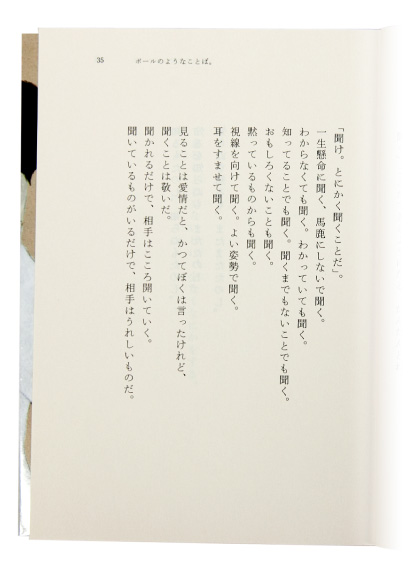 35
ボールのようなことば。
「聞け。とにかく聞くことだ」。
一生懸命に聞く、馬鹿にしないで聞く。
わからなくても聞く。わかっていても聞く。
知ってることでも聞く。聞くまでもないことでも聞く。
おもしろくないことも聞く。
黙っているものからも聞く。
視線を向けて聞く。よい姿勢で聞く。
耳をすませて聞く。
見ることは愛情だと、かつてぼくは言ったけれど、
聞くことは敬いだ。
聞かれるだけで、相手はこころ開いていく。
聞いているものがいるだけで、相手はうれしいものだ。